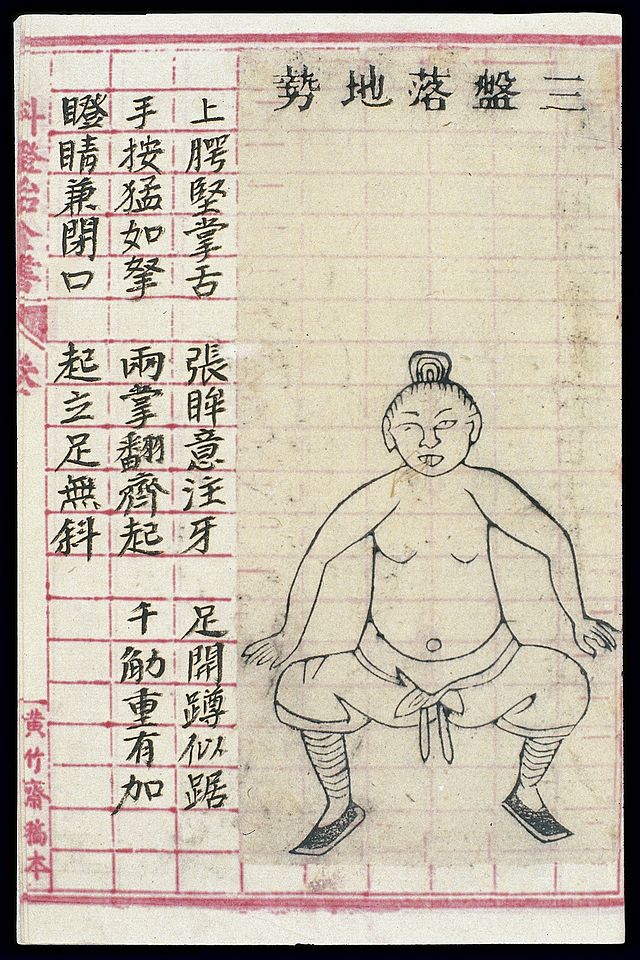 三盤落地勢
上腭堅掌舌 張眸意注牙 足開蹲似踞
手按猛如拏 兩掌翻齊起 千觔重有加
瞪睛兼閉口 起立足無斜
科證治全書 卷
黃竹齋稿本